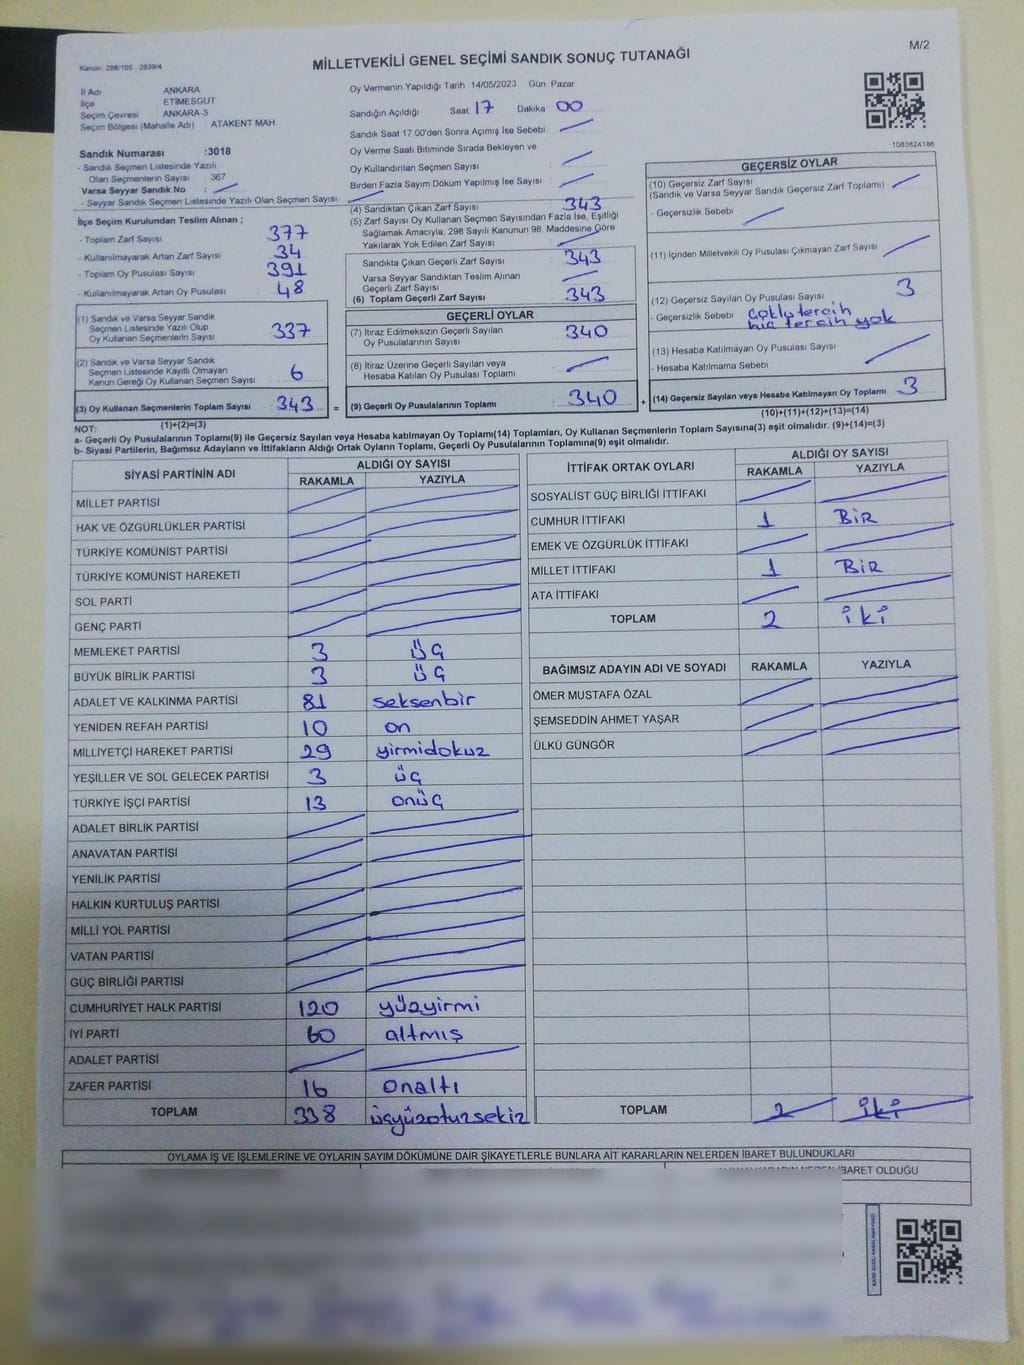 M/2
Kanun: 298/105 , 2839/4
MİLLETVEKİLİ GENEL SEÇİMİ SANDIK SONUÇ TUTANAĞI
İl Adı ANKARA
İlçe ETİMESGUT
Seçim Çevresi ANKARA-3
Seçim Bölgesi (Mahalle Adı) ATAKENT MAH
Sandık Numarası :3018
- Sandık Seçmen Listesinde Yazılı
Olan Seçmenlerin Sayısı 367
Varsa Seyyar Sandık No :
- Seyyar Sandık Seçmen Listesinde Yazılı Olan Seçmen Sayısı
İlçe Seçim Kurulundan Teslim Alınan ;
- Toplam Zarf Sayısı 377
- Kullanılmayarak Artan Zarf Sayısı 34
- Toplam Oy Pusulası Sayısı 391
- Kullanılmayarak Artan Oy Pusulası 48
(1) Sandık ve Varsa Seyyar Sandık
Seçmen Listesinde Yazılı Olup
Oy Kullanan Seçmenlerin Sayısı 337
(2) Sandık ve Varsa Seyyar Sandık
Seçmen Listesinde Kayıtlı Olmayan
Kanun Gereği Oy Kullanan Seçmen Sayısı 6
(3) Oy Kullanan Seçmenlerin Toplam Sayısı 343 =
(1)+(2)=(3)
Oy Vermenin Yapıldığı Tarih 14/05/2023 Gün Pazar
Sandığın Açıldığı Saat 17 Dakika 00
Sandık Saat 17:00'den Sonra Açımış İse Sebebi
Oy Verme Saati Bitiminde Sırada Bekleyen ve
Oy Kullandırılan Seçmen Sayısı
Birden Fazla Sayım Döküm Yapılmış İse Sayısı
(4) Sandıktan Çıkan Zarf Sayısı 343
(5) Zarf Sayısı Oy Kullanan Seçmen Sayısından Fazla İse, Eşitliği
Sağlamak Amacıyla, 298 Sayılı Kanunun 98. Maddesine Göre
Yakılarak Yok Edilen Zarf Sayısı
Sandıkta Çıkan Geçerli Zarf Sayısı 343
Varsa Seyyar Sandıktan Teslim Alınan
Geçerli Zarf Sayısı
(6) Toplam Geçerli Zarf Sayısı 343
GEÇERLİ OYLAR
(7) İtiraz Edilmeksizin Geçerli Sayılan
Oy Pusulalarının Sayısı 340
(8) İtiraz Üzerine Geçerli Sayılan veya
Hesaba Katılan Oy Pusulası Toplamı
(9) Geçerli Oy Pusulalarının Toplamı 340 +
1083624186
GEÇERSİZ OYLAR
(10) Geçersiz Zarf Sayısı
(Sandık ve Varsa Seyyar Sandık Geçersiz Zarf Toplamı)
- Geçersizlik Sebebi
(11) İçinden Milletvekili Oy Pusulası Çıkmayan Zarf Sayısı
(12) Geçersiz Sayılan Oy Pusulası Sayısı 3
- Geçersizlik Sebebi çoklu tercih
hiç tercih yok
(13) Hesaba Katılmayan Oy Pusulası Sayısı
- Hesaba Katılmama Sebebi
(14) Geçersiz Sayılan veya Hesaba Katılmayan Oy Toplamı 3
(10)+(11)+(12)+(13)=(14)
NOT:
a- Geçerli Oy Pusulalarının Toplamı(9) ile Geçersiz Sayılan veya Hesaba katılmayan Oy Toplamı(14) Toplamları, Oy Kullanan Seçmenlerin Toplam Sayısına(3) eşit olmalıdır. (9)+(14)=(3)
b- Siyasi Partilerin, Bağımsız Adayların ve İttifakların Aldığı Ortak Oyların Toplamı, Geçerli Oy Pusulalarının Toplamına(9) eşit olmalıdır.
SİYASİ PARTİNİN ADI ALDIĞI OY SAYISI
RAKAMLA YAZIYLA
MİLLET PARTİSİ
HAK VE ÖZGÜRLÜKLER PARTİSİ
TÜRKİYE KOMÜNİST PARTİSİ
TÜRKİYE KOMÜNİST HAREKETİ
SOL PARTİ
GENÇ PARTİ
MEMLEKET PARTİSİ 3 üç
BÜYÜK BİRLİK PARTİSİ 3 üç
ADALET VE KALKINMA PARTİSİ 81 seksenbir
YENİDEN REFAH PARTİSİ 10 on
MİLLİYETÇİ HAREKET PARTİSİ 29 yirmidokuz
YEŞİLLER VE SOL GELECEK PARTİSİ 3 üç
TÜRKİYE İŞÇİ PARTİSİ 13 onüç
ADALET BİRLİK PARTİSİ
ANAVATAN PARTİSİ
YENİLİK PARTİSİ
HALKIN KURTULUŞ PARTİSİ
MİLLİ YOL PARTİSİ
VATAN PARTİSİ
GÜÇ BİRLİĞİ PARTİSİ
CUMHURİYET HALK PARTİSİ 120 yüzyirmi
İYİ PARTİ 60 altmış
ADALET PARTİSİ
ZAFER PARTİSİ 16 onaltı
TOPLAM 338 üçyüzotuzsekiz
İTTİFAK ORTAK OYLARI ALDIĞI OY SAYISI
RAKAMLA YAZIYLA
SOSYALİST GÜÇ BİRLİĞİ İTTİFAKI
CUMHUR İTTİFAKI 1 BİR
EMEK VE ÖZGÜRLÜK İTTİFAKI
MİLLET İTTİFAKI 1 BİR
ATA İTTİFAKI
TOPLAM 2 iki
BAĞIMSIZ ADAYIN ADI VE SOYADI RAKAMLA YAZIYLA
ÖMER MUSTAFA ÖZAL
ŞEMSEDDİN AHMET YAŞAR
ÜLKÜ GÜNGÖR
TOPLAM 2 iki
OYLAMA İŞ VE İŞLEMLERİNE VE OYLARIN SAYIM DÖKÜMÜNE DAİR ŞİKAYETLERLE BUNLARA AİT KARARLARIN NELERDEN İBARET BULUNDUKLARI
İBARET OLDUĞU